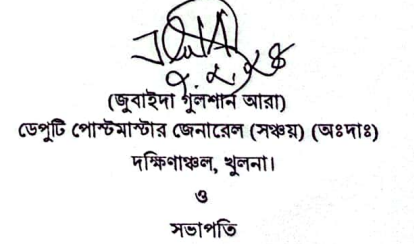 (জুবাইদা গুলশান আরা)
ডেপুটি পোস্টমাস্টার জেনারেল (সঞ্চয়) (অঃদাঃ)
দক্ষিণাঞ্চল, খুলনা।
ও
সভাপতি